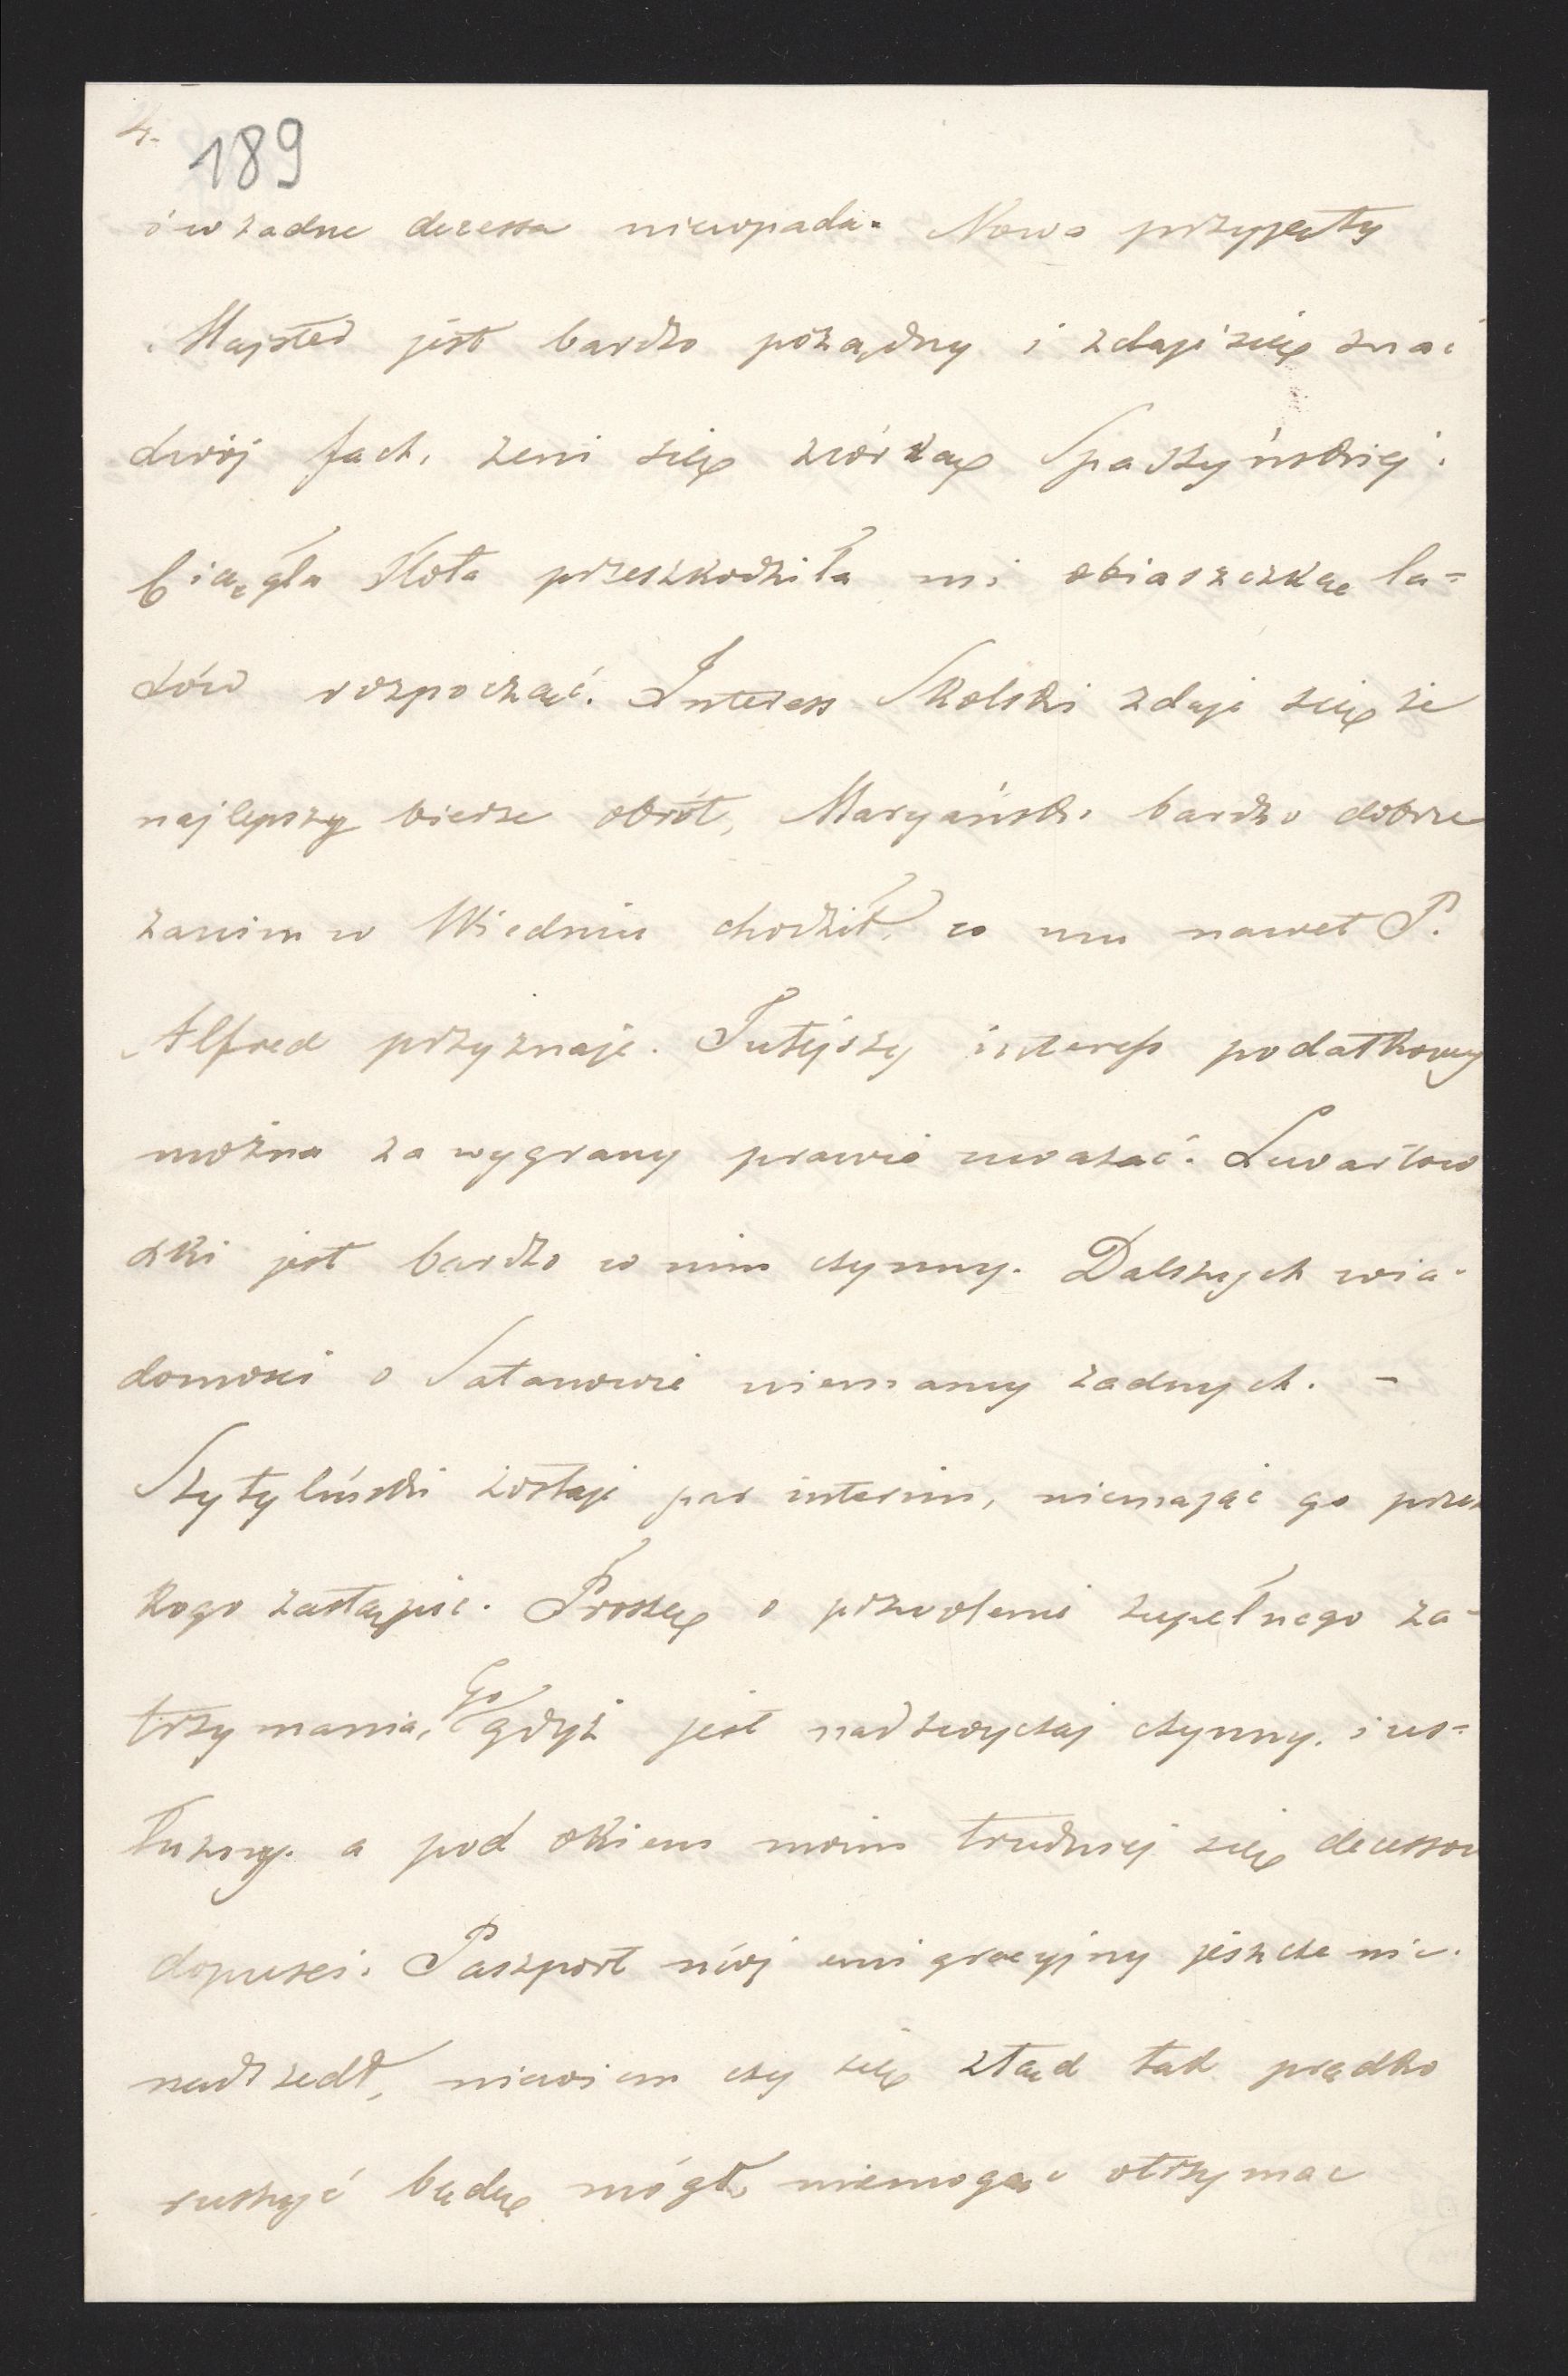 4.
189
i w żadne decessa niewpada. Nowo przyjęty
Majster jest bardzo porządny i zdaje się znać
swój fach, żeni się zcórką Spaszyńskiej.
Ciągła słota przeszkodziła mi obiaszczkę la=
sów rozpocząć. Interess Skolski zdaje się że
najlepszy bierze obrót, Maryański bardzo dobrze
zanim w Wiedniu chodził, co mu nawet P.
Alfred przyznaje. Tutejszy interess podatkowy
można za wygrany prawie uważać. Lewartow
ski jest bardzo w nim czynny. Dalszych wia-
domości o Satanowie niemamy żadnych. –
Szytyliński zostaje par interim, niemając go przez
kogo zastąpić. Proszę o pozwolenie zupełnego za-
trzymania, Go gdyż jest nadzwyczaj czynny i us=
łużny. a pod okiem moim trudniej się decessow
dopuści. Paszport mój emigracyjny jeszcze nie.
nadszedł, niewiem czy się ztąd tak prędko
ruszyć będę mógł, niemogąc otrzymac